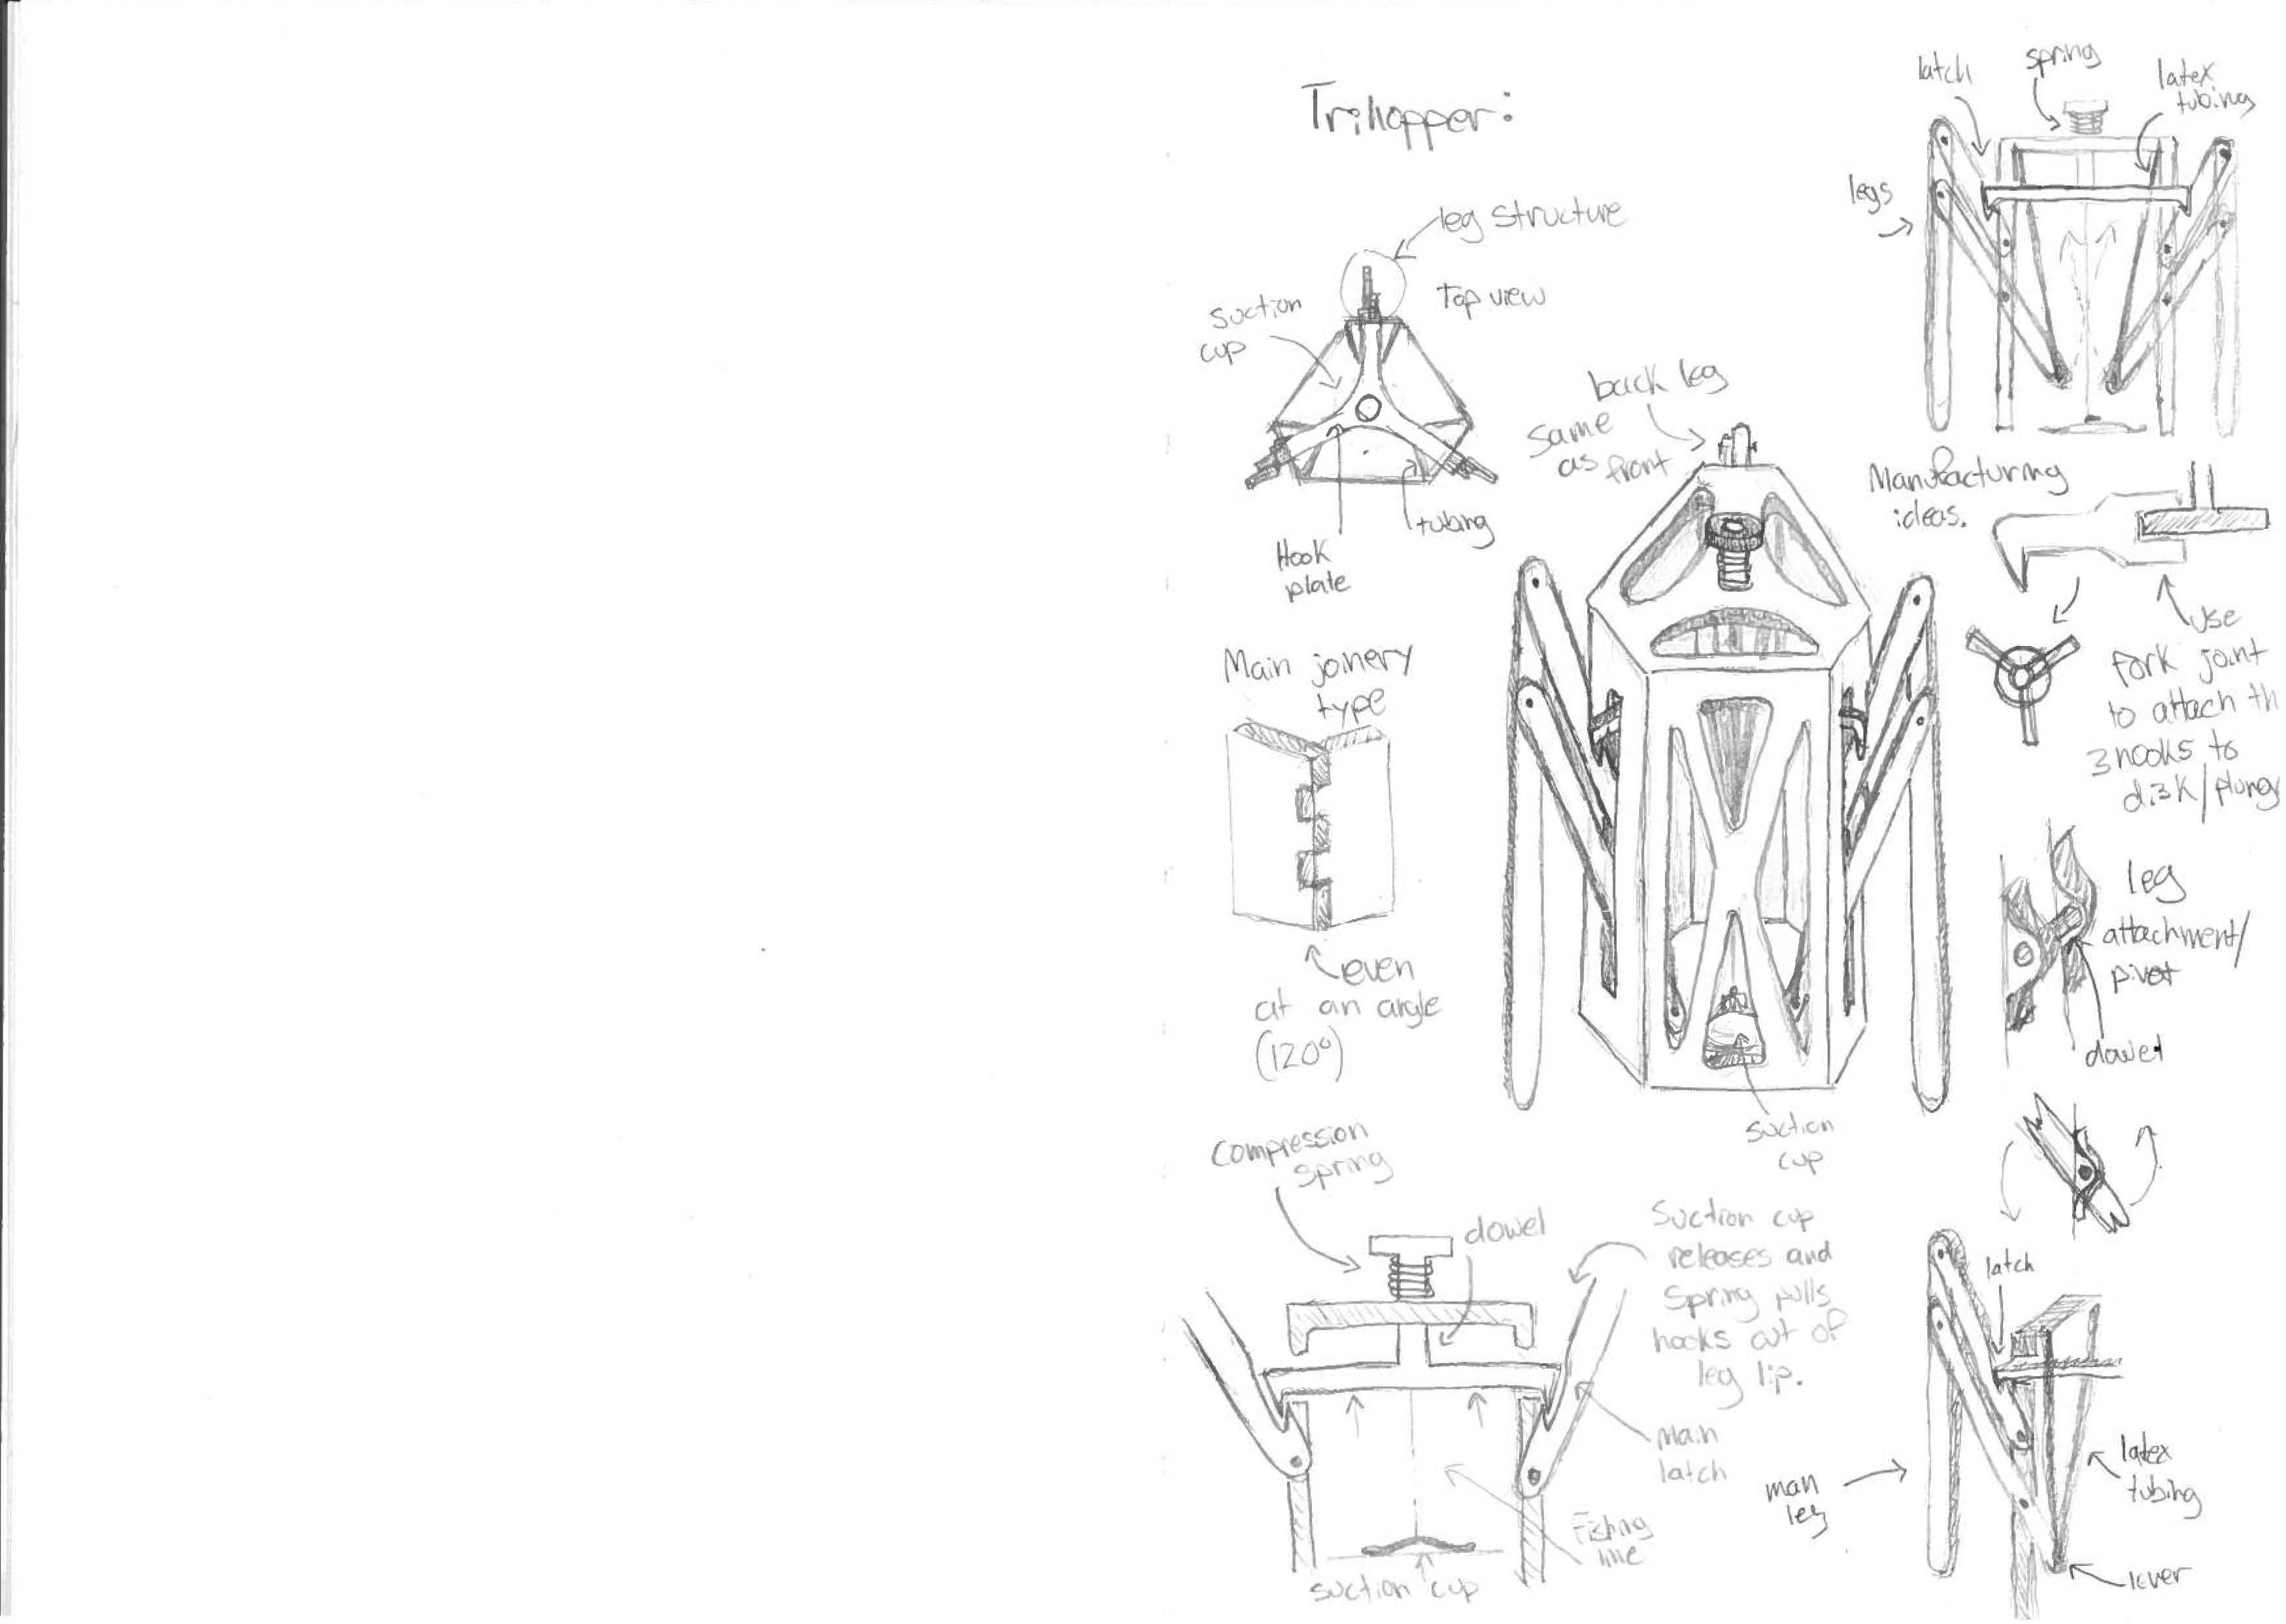 Trihopper:
leg structure
Top view
suction
cup
Hook
plate
tubing
latch
spring
latex
tubing
legs
back leg
same
as front
Manufacturing
ideas.
use
fork joint
to attach th
3 hooks to
disk/plung
Main joinery
type
even
at an angle
(120°)
leg
attachment/
pivot
dowel
suction
cup
Compression
spring
dowel
Suction cup
releases and
spring pulls
hooks out of
leg lip.
Main
latch
Fishing
line
suction cup
latch
man
leg
latex
tubing
lever